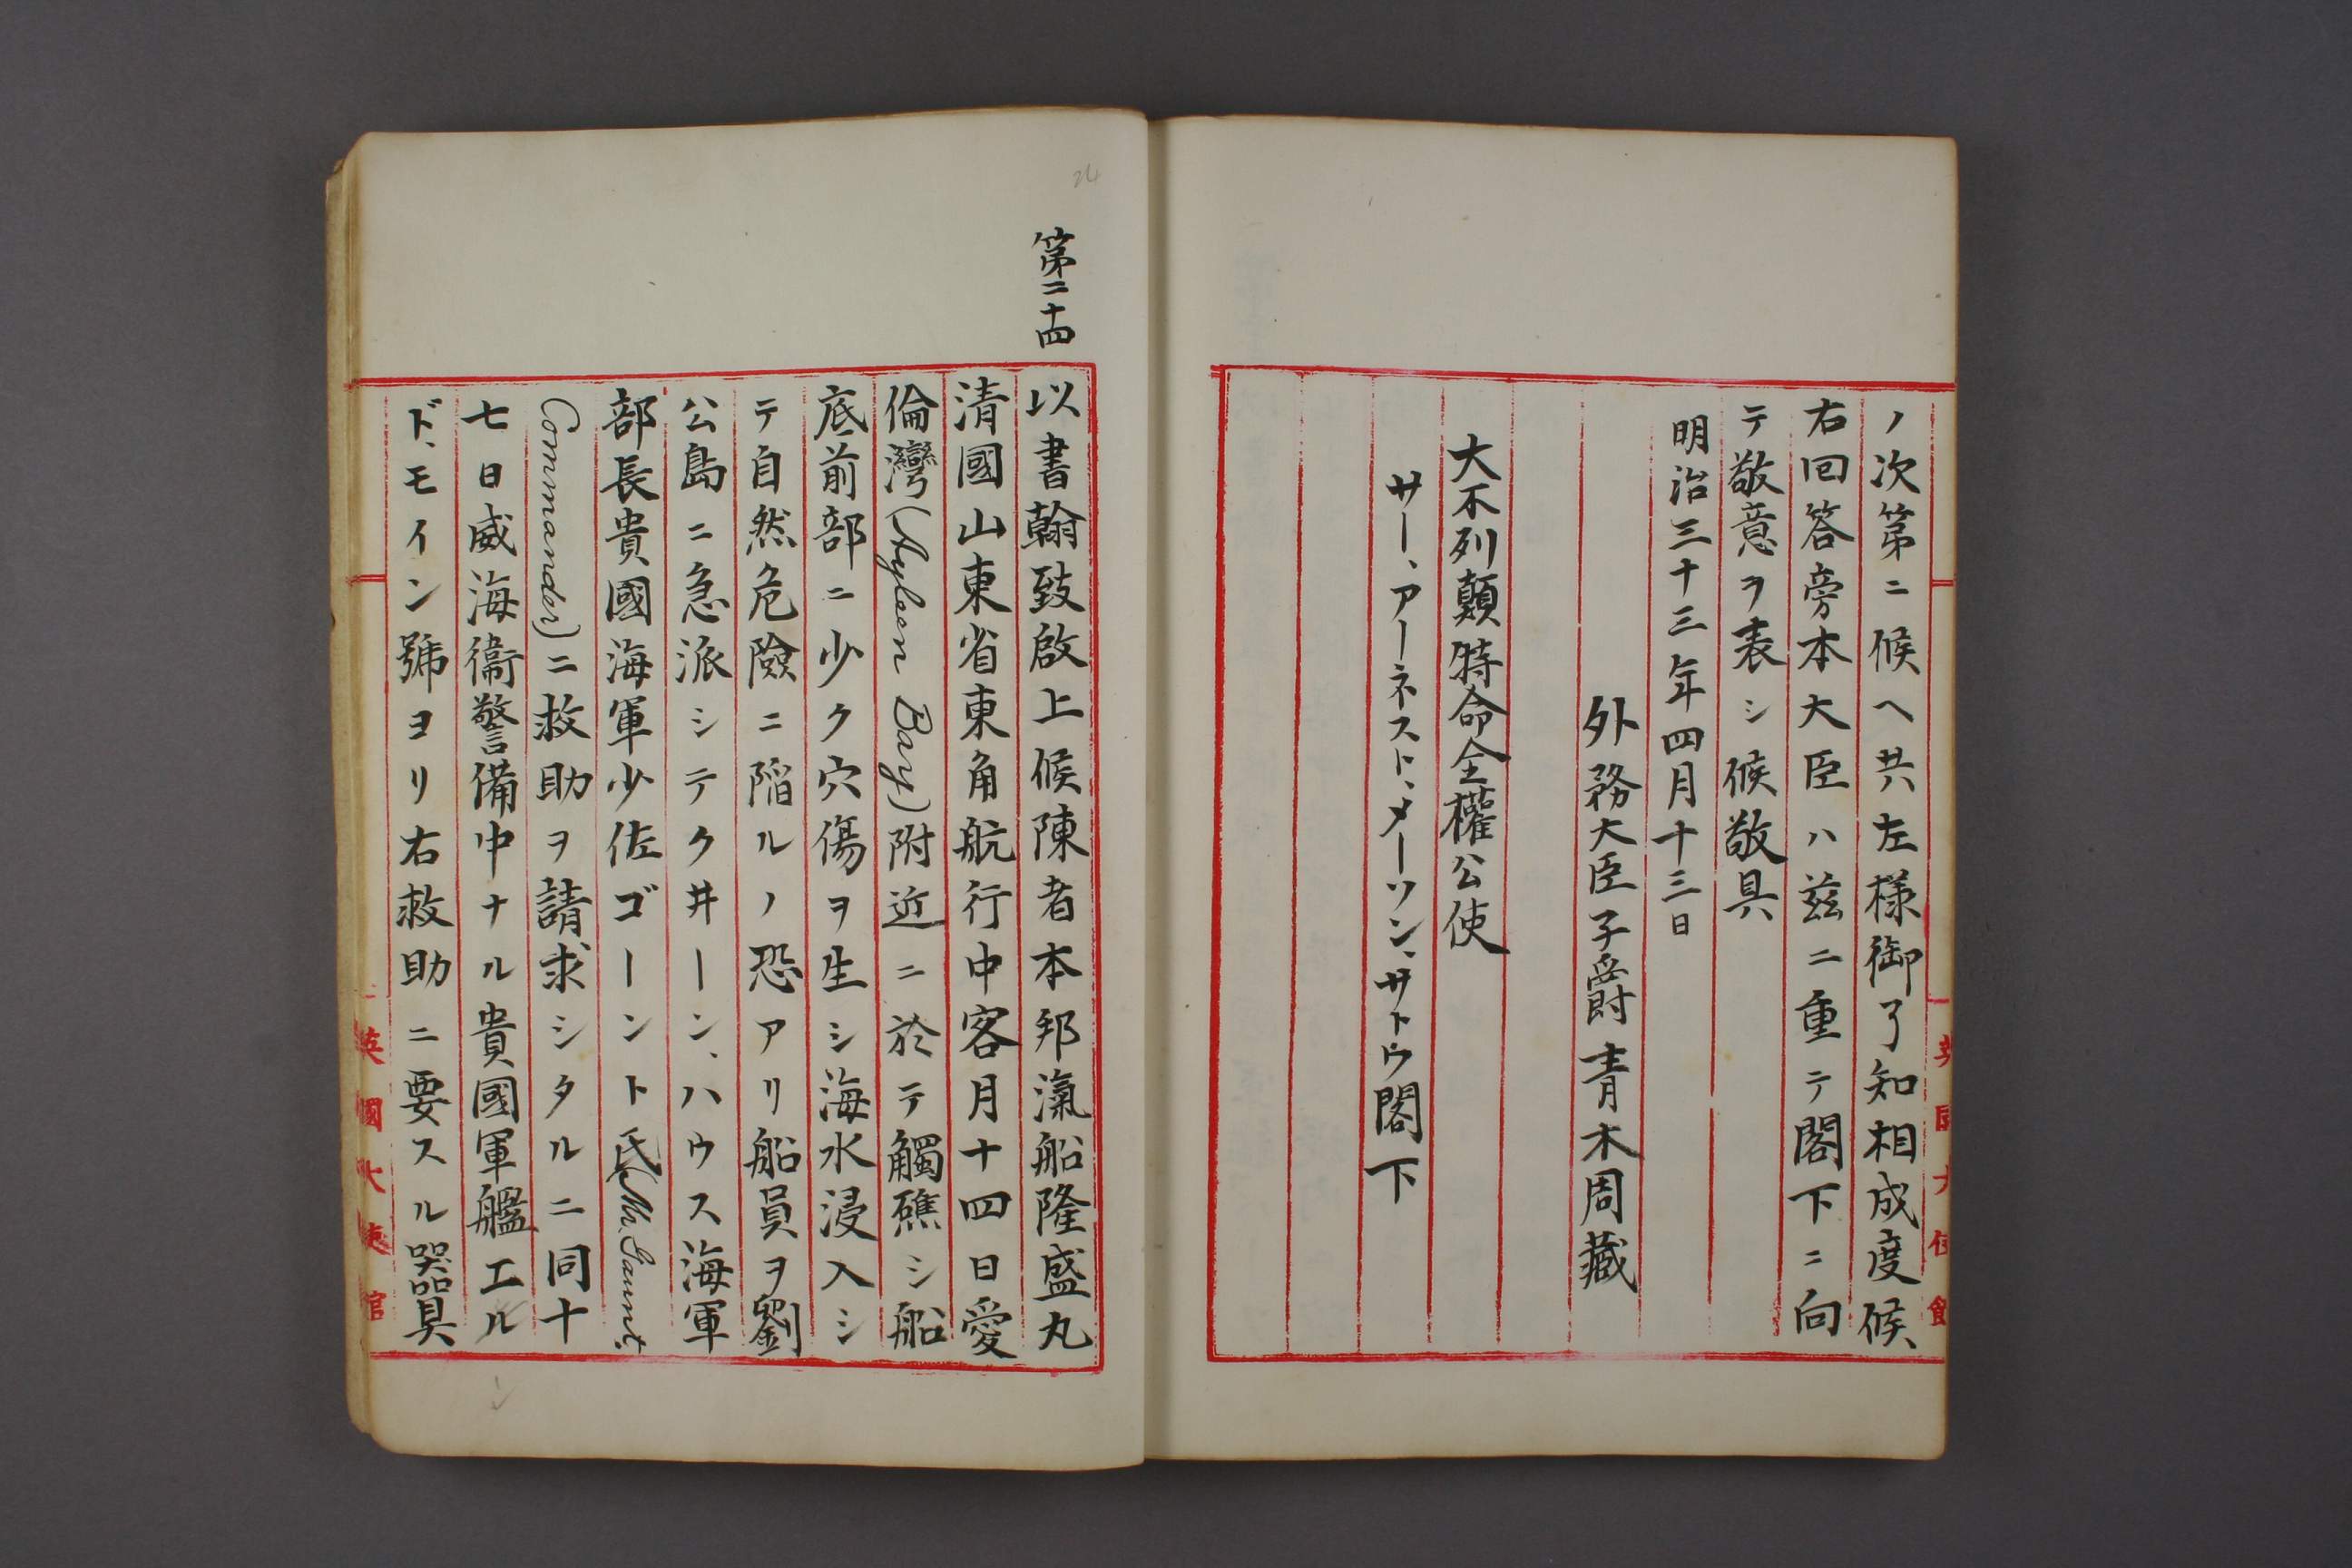 ノ次第ニ候ヘ共左様御了知相成度候
右回答旁本大臣ハ茲ニ重テ閣下ニ向
テ敬意ヲ表シ候敬具
明治三十三年四月十三日
外務大臣子爵青木周藏
大不列顛特命全權公使
サー、アーネスト、メーソン、サトウ閣下
英國大使館
24
第二十四
以書翰致啟上候陳者本邦滊船隆盛丸
清國山東省東角航行中客月十四日愛
倫灣(Aylen Bay)附近ニ於テ觸礁シ船
底前部ニ少ク穴傷ヲ生シ海水浸入シ
テ自然危險ニ陷ルノ恐アリ船員ヲ劉
公島ニ急派シテクヰーン、ハウス海軍
部長貴國海軍少佐ゴーント氏(Mr. Gaunt.
Commander)ニ救助ヲ請求シタルニ同十
七日威海衞警備中ナル貴國軍艦エル
ド、モイン號ヨリ右救助ニ要スル器具
英國大使館